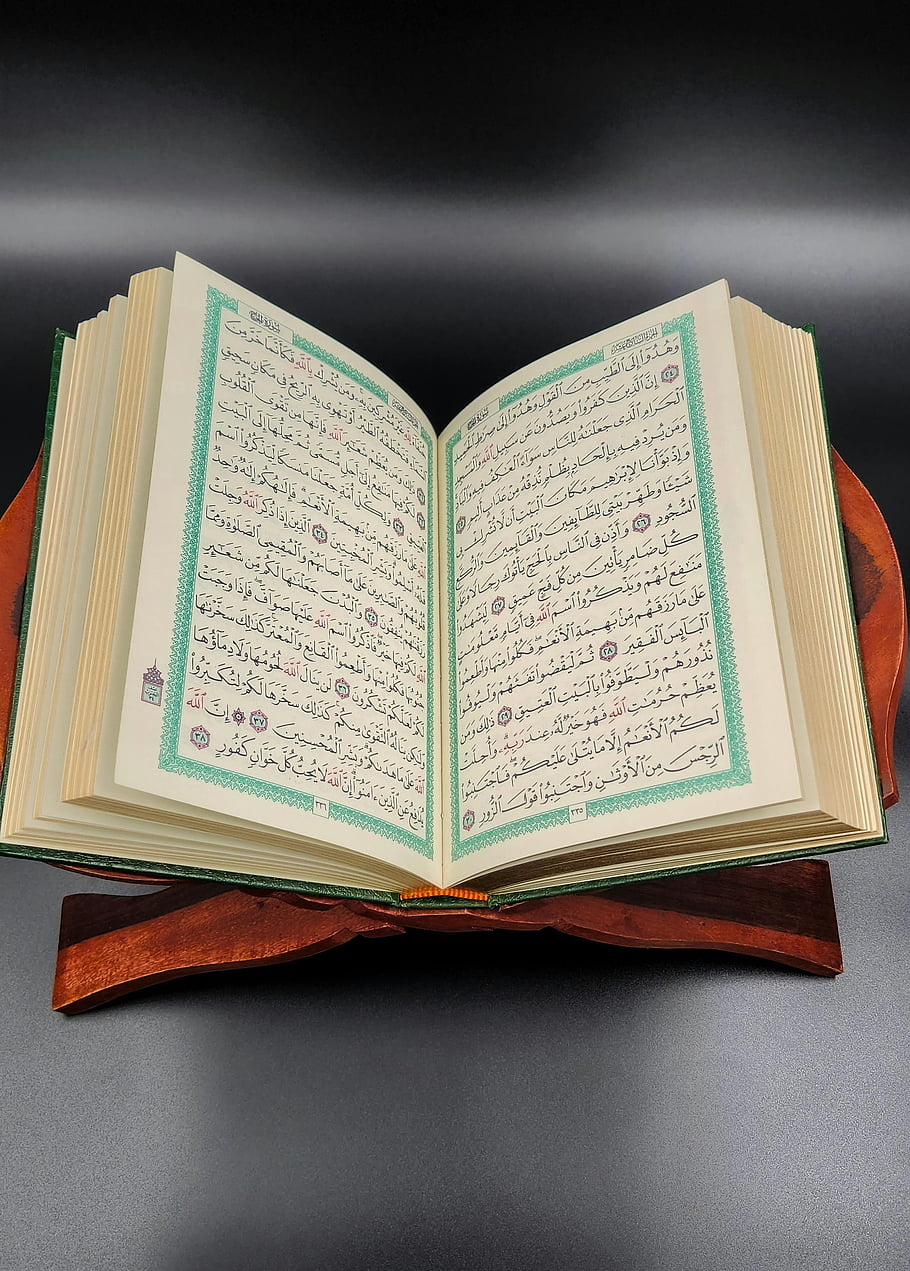 وَهُدُوٓا۟ إِلَى ٱلطَّيِّبِ مِنَ ٱلْقَوْلِ وَهُدُوٓا۟ إِلَىٰ صِرَٰطِ
٢٤ إِنَّ ٱلَّذِينَ كَفَرُوا۟ وَيَصُدُّونَ عَن سَبِيلِ ٱللَّهِ وَٱلْمَسْجِدِ
ٱلْحَرَامِ ٱلَّذِى جَعَلْنَٰهُ لِلنَّاسِ سَوَآءً ٱلْعَٰكِفُ فِيهِ وَٱلْبَادِ
وَمَن يُرِدْ فِيهِ بِإِلْحَادٍۭ بِظُلْمٍ نُّذِقْهُ مِنْ عَذَابٍ أَلِيمٍ ٢٥
وَإِذْ بَوَّأْنَا لِإِبْرَٰهِيمَ مَكَانَ ٱلْبَيْتِ أَن لَّا تُشْرِكْ بِى
شَيْـًٔا وَطَهِّرْ بَيْتِىَ لِلطَّآئِفِينَ وَٱلْقَآئِمِينَ وَٱلرُّكَّعِ
ٱلسُّجُودِ ٢٦ وَأَذِّن فِى ٱلنَّاسِ بِٱلْحَجِّ يَأْتُوكَ رِجَالًا وَعَلَىٰ
كُلِّ ضَامِرٍ يَأْتِينَ مِن كُلِّ فَجٍّ عَمِيقٍ ٢٧ لِّيَشْهَدُوا۟
مَنَٰفِعَ لَهُمْ وَيَذْكُرُوا۟ ٱسْمَ ٱللَّهِ فِىٓ أَيَّامٍ مَّعْلُومَٰتٍ
عَلَىٰ مَا رَزَقَهُم مِّنۢ بَهِيمَةِ ٱلْأَنْعَٰمِ فَكُلُوا۟ مِنْهَا وَأَطْعِمُوا۟
ٱلْبَآئِسَ ٱلْفَقِيرَ ٢٨ ثُمَّ لْيَقْضُوا۟ تَفَثَهُمْ وَلْيُوفُوا۟
نُذُورَهُمْ وَلْيَطَّوَّفُوا۟ بِٱلْبَيْتِ ٱلْعَتِيقِ ٢٩ ذَٰلِكَ وَمَن
يُعَظِّمْ حُرُمَٰتِ ٱللَّهِ فَهُوَ خَيْرٌ لَّهُۥ عِندَ رَبِّهِۦ وَأُحِلَّتْ
لَكُمُ ٱلْأَنْعَٰمُ إِلَّا مَا يُتْلَىٰ عَلَيْكُمْ فَٱجْتَنِبُوا۟
ٱلرِّجْسَ مِنَ ٱلْأَوْثَٰنِ وَٱجْتَنِبُوا۟ قَوْلَ ٱلزُّورِ ٣٠
٣٣٥
سُورَةُ الحَجِّ
مُشْرِكِينَ بِهِۦ وَمَن يُشْرِكْ بِٱللَّهِ فَكَأَنَّمَا خَرَّ مِنَ
ٱلسَّمَآءِ فَتَخْطَفُهُ ٱلطَّيْرُ أَوْ تَهْوِى بِهِ ٱلرِّيحُ فِى مَكَانٍ سَحِيقٍ
وَمَن يُعَظِّمْ شَعَٰٓئِرَ ٱللَّهِ فَإِنَّهَا مِن تَقْوَى ٱلْقُلُوبِ
لَكُمْ فِيهَا مَنَٰفِعُ إِلَىٰٓ أَجَلٍ مُّسَمًّى ثُمَّ مَحِلُّهَآ إِلَى ٱلْبَيْتِ
وَلِكُلِّ أُمَّةٍ جَعَلْنَا مَنسَكًا لِّيَذْكُرُوا۟ ٱسْمَ
ٱللَّهِ عَلَىٰ مَا رَزَقَهُم مِّنۢ بَهِيمَةِ ٱلْأَنْعَٰمِ فَإِلَٰهُكُمْ إِلَٰهٌ وَٰحِدٌ
فَلَهُۥٓ أَسْلِمُوا۟ وَبَشِّرِ ٱلْمُخْبِتِينَ ٣٤ ٱلَّذِينَ إِذَا ذُكِرَ ٱللَّهُ وَجِلَتْ
قُلُوبُهُمْ وَٱلصَّٰبِرِينَ عَلَىٰ مَآ أَصَابَهُمْ وَٱلْمُقِيمِى ٱلصَّلَوٰةِ وَمِمَّا
رَزَقْنَٰهُمْ يُنفِقُونَ ٣٥ وَٱلْبُدْنَ جَعَلْنَٰهَا لَكُم مِّن شَعَٰٓئِرِ
ٱللَّهِ لَكُمْ فِيهَا خَيْرٌ فَٱذْكُرُوا۟ ٱسْمَ ٱللَّهِ عَلَيْهَا صَوَآفَّ فَإِذَا وَجَبَتْ
جُنُوبُهَا فَكُلُوا۟ مِنْهَا وَأَطْعِمُوا۟ ٱلْقَانِعَ وَٱلْمُعْتَرَّ كَذَٰلِكَ سَخَّرْنَٰهَا
لَكُمْ لَعَلَّكُمْ تَشْكُرُونَ ٣٦ لَن يَنَالَ ٱللَّهَ لُحُومُهَا وَلَا دِمَآؤُهَا
وَلَٰكِن يَنَالُهُ ٱلتَّقْوَىٰ مِنكُمْ كَذَٰلِكَ سَخَّرَهَا لَكُمْ لِتُكَبِّرُوا۟
ٱللَّهَ عَلَىٰ مَا هَدَىٰكُمْ وَبَشِّرِ ٱلْمُحْسِنِينَ ٣٧ ۞ إِنَّ ٱللَّهَ
يُدَٰفِعُ عَنِ ٱلَّذِينَ ءَامَنُوٓا۟ إِنَّ ٱللَّهَ لَا يُحِبُّ كُلَّ خَوَّانٍ كَفُورٍ ٣٨
٣٣٦